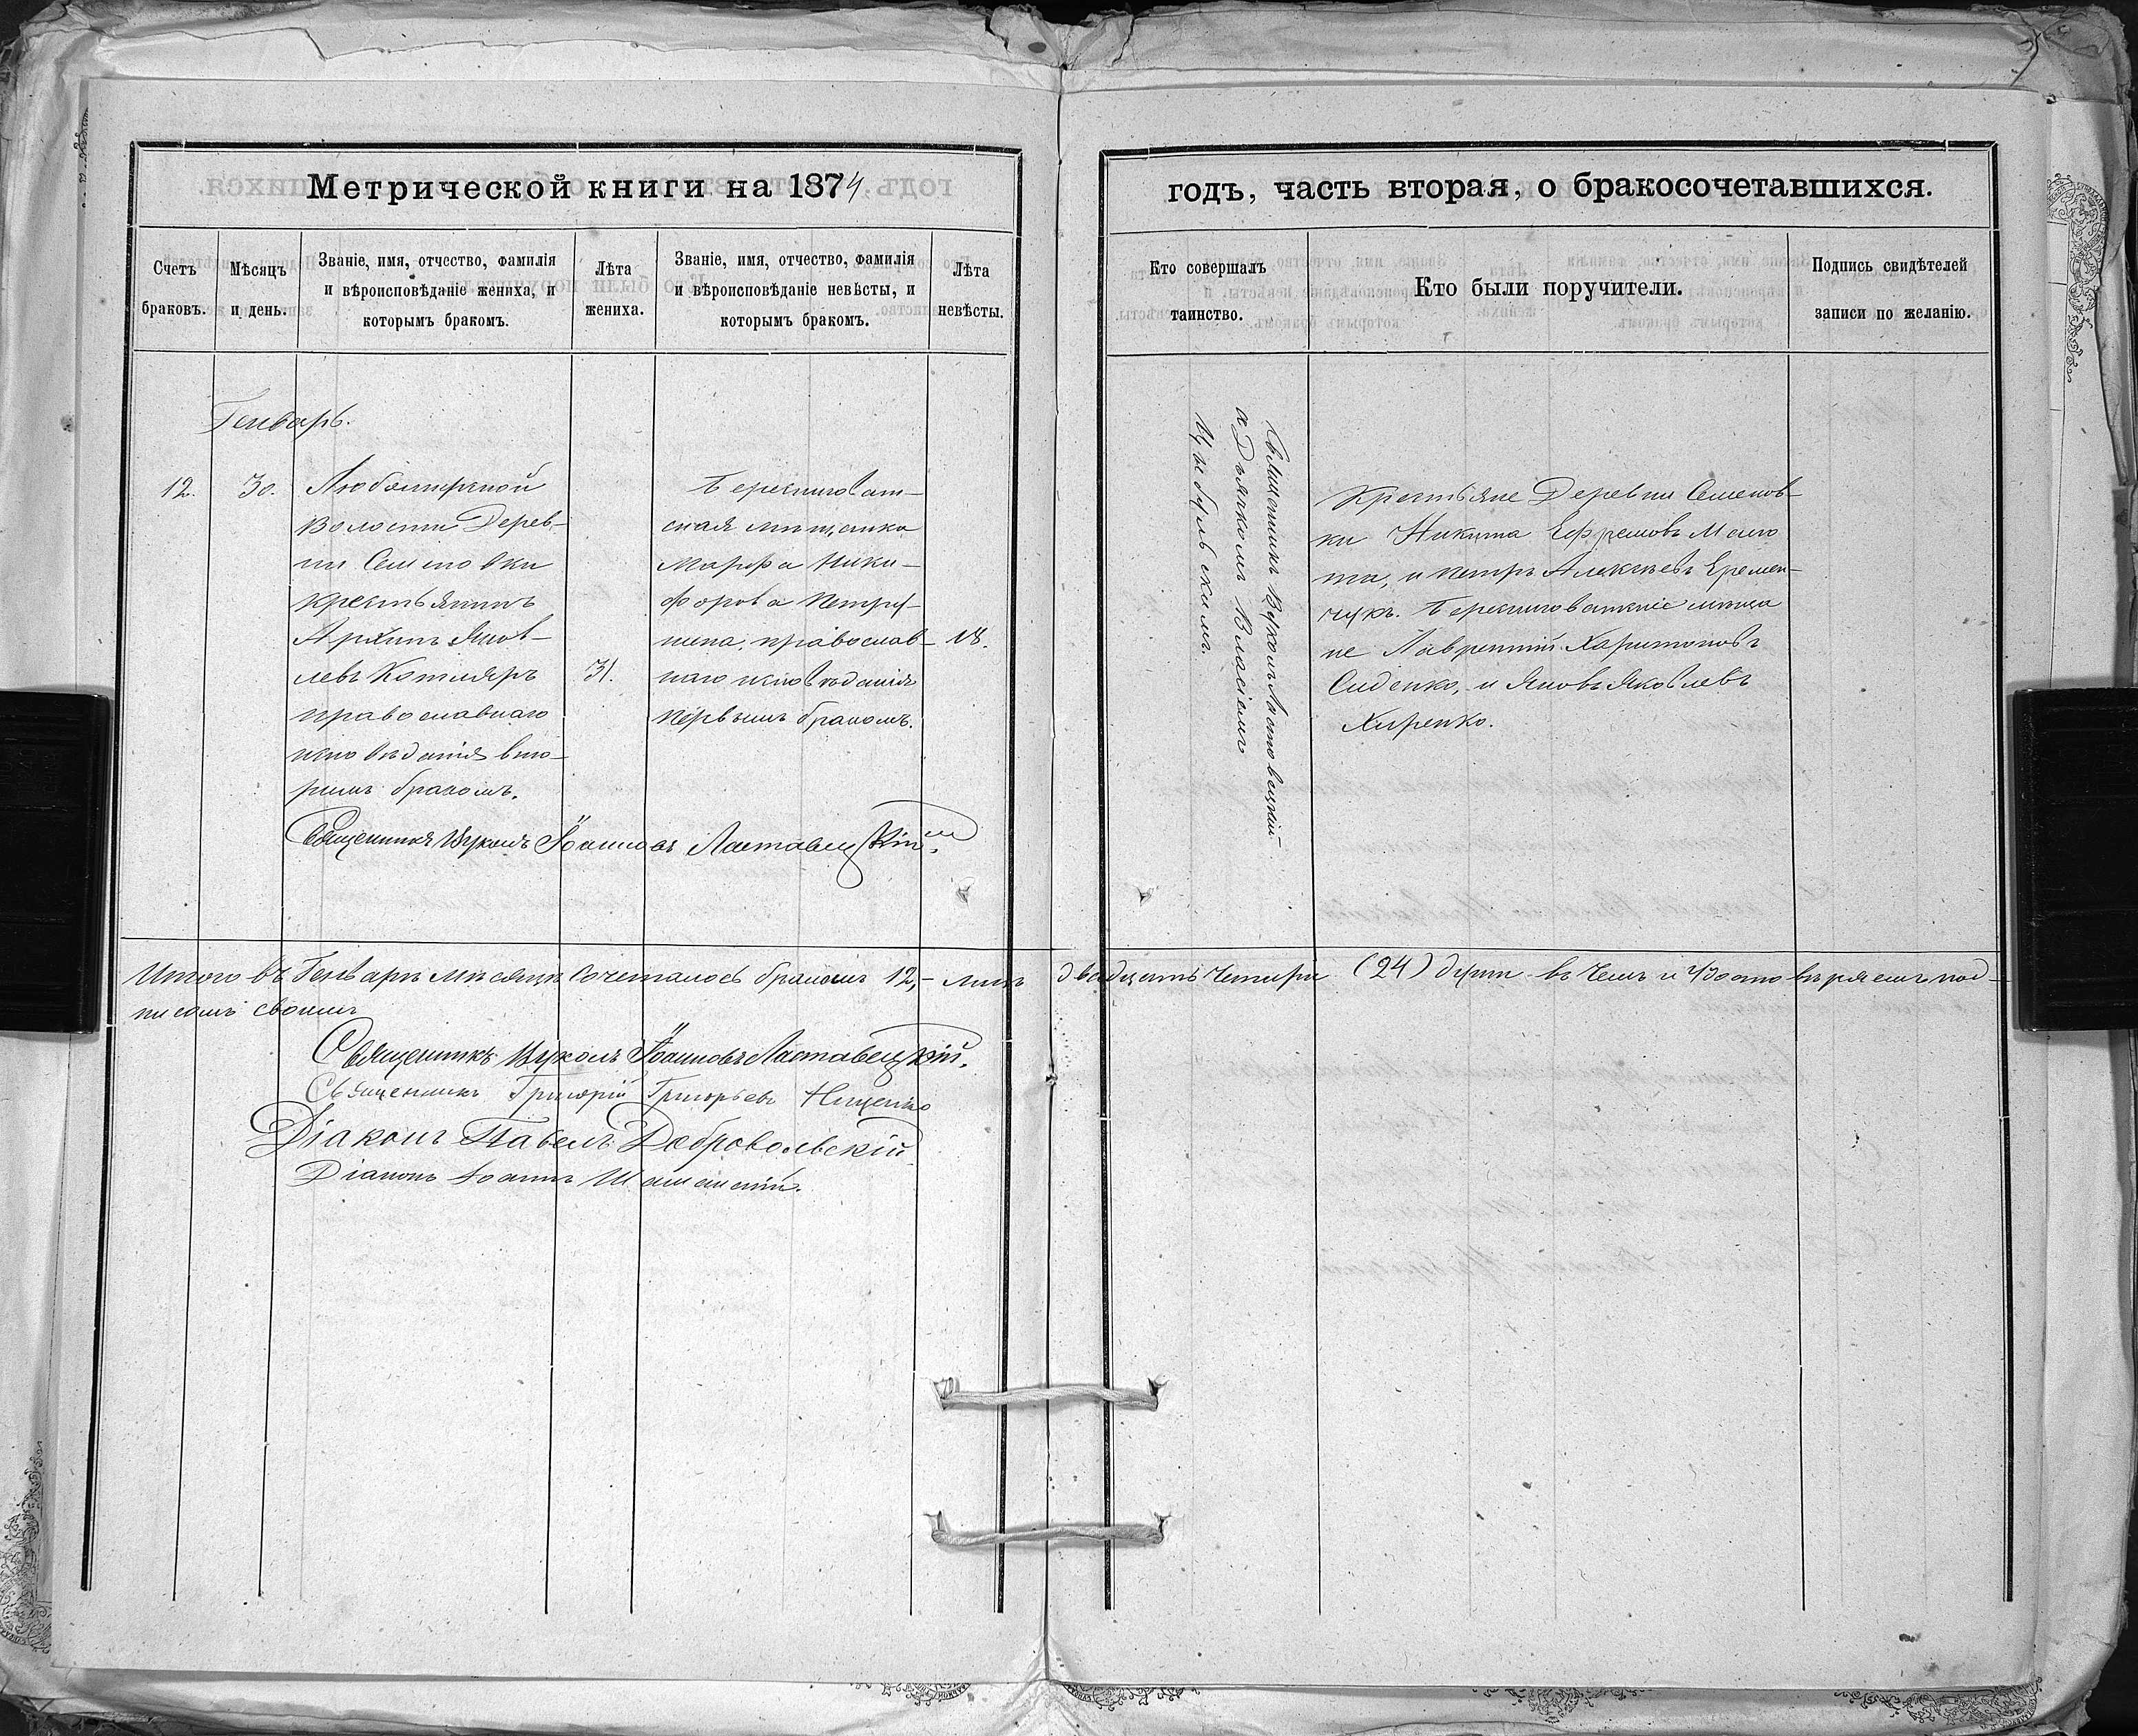 Метрической книги на 1874
годъ, часть вторая, о бракосочетавшихся.
Счетъ браковъ.
Мѣсяцъ и день.
Званіе, имя, отчество, фамилія
и вѣроисповѣданіе жениха, и
которымъ бракомъ.
Лѣта жениха.
Званіе, имя, отчество, фамилія
и вѣроисповѣданіе невѣсты, и
которымъ бракомъ.
Лѣта невѣсты.
Кто совершалъ
таинство.
Кто были поручители.
Подпись свидѣтелей
записи по желанію.
Генварь.
12.
30.
Волости Дерев-
ни Семеновки
крестьянинъ
Архипъ Яков-
левъ Котляръ
православнаго
исповѣданія вто-
рымъ бракомъ.
31.
Березиговат-
ская мѣщанка
Марфа Ники-
форова
православ-
наго исповѣданія
первымъ бракомъ.
18.
Священникъ Вуколъ Ластовецкій
съ Дьячкомъ Власіемъ
Цыбульскимъ.
Крестьяне Деревни Семенов-
ки Никита Ефремовъ
та, и Петръ Алексѣевъ Еремен-
чукъ. Березниговатскіе мѣща
не Лаврентій Харитоновъ
Сиденко, и Яковъ Яковлевъ
Хиренко.
Священникъ Вуколъ Іоанновъ Ластавецкій.
Итого въ Генварѣ мѣсяцѣ сочеталось бракомъ 12,- лицъ двадцать четыри (24) души въ чемъ и удостовѣряемъ под-
писомъ своимъ
Священникъ Вуколъ Іоанновъ Ластавецкій.
Священникъ Григорій Григорьевъ Нищенко
Діаконъ Павелъ Добровольскій
Діаконъ Іоаннъ